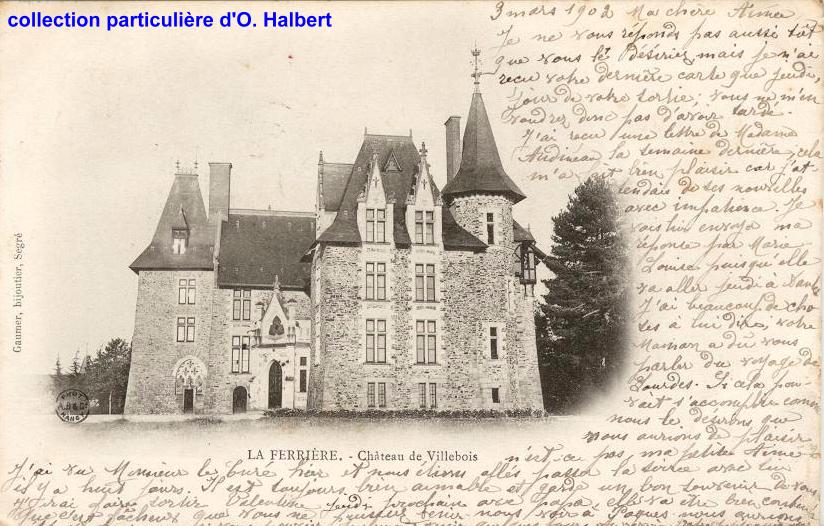 collection particulière d'O. Halbert
3 mars 1902 Ma chère Aimée
Je ne vous réponds pas aussi tôt
que vous le Désiriez, mais je n'ai
recu votre dernière carte que jeudi,
jour de votre sortie, vous ne m'en
voudrez donc pas d'avoir tardé.
J'ai recu une lettre de Madame
Audineau la semaine dernière, cela
m'a fait bien plaisir car j'at-
tendais de ses nouvelles
avec impatience. Je
vous envoya ma
réponse par Marie
Louise puisqu'elle
va aller jeudi à
J'ai beaucoup de cho-
ses à lui dire, votre
Maman a dû vous
parler du voyage de
Lourdes. Si cela pou-
vait s'accomplir comme
nous le désirons que
nous aurions de plaisir
n'est ce pas, ma petite Aimée
Gaumer, bijoutier, Segré
LA FERRIÈRE. - Château de Villebois
J'ai vu Monsieur le Curé hier et nous étions allés passer la soirée avec lui
il y a huit jours. Il est toujours bien aimable et garde un bon souvenir de vous
faire sortir Valentine jeudi prochain avec Papa, elle va être bien contente
que vous ne puissiez venir nous voir à Pâques nous aurions